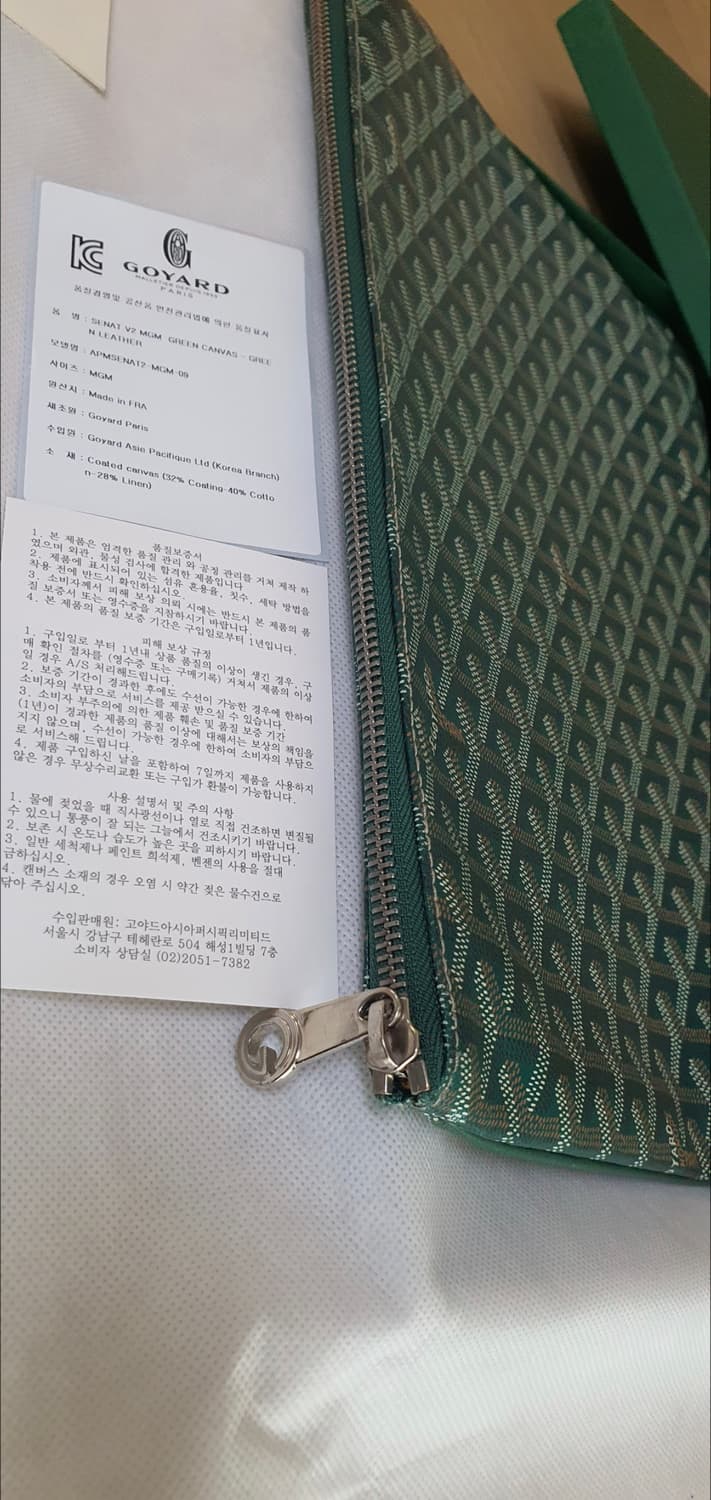 KC
G
GOYARD
MALLETIER DEPUIS 1853
PARIS
품질경영및 공산품 안전관리법에 의한 품질표시
품 명 : SENAT V2 MGM GREEN CANVAS - GREE
N LEATHER
모델명 : APMSENAT2-MGM-09
사이즈 : MGM
원산지 : Made in FRA
제조원 : Goyard Paris
수입원 : Goyard Asie Pacifique Ltd (Korea Branch)
소 재 : Coated canvas (32% Coating-40% Cotto
n-28% Linen)
품질보증서
1. 본 제품은 엄격한 품질 관리 와 공정 관리를 거쳐 제작 하
였으며 외관, 물성 검사에 합격한 제품입니다
2. 제품에 표시되어 있는 섬유 혼용율, 칫수, 세탁 방법을
착용 전에 반드시 확인하십시오.
3. 소비자께서 피해 보상 의뢰 시에는 반드시 본 제품의 품
질 보증서 또는 영수증을 지참하시기 바랍니다.
4. 본 제품의 품질 보증 기간은 구입일로부터 1년입니다.
피해 보상 규정
1. 구입일로 부터 1년내 상품 품질의 이상이 생긴 경우, 구
매 확인 절차를 (영수증 또는 구매기록) 거쳐서 제품의 이상
일 경우 A/S 처리해드립니다.
2. 보증 기간이 경과한 후에도 수선이 가능한 경우에 한하여
소비자의 부담으로 서비스를 제공 받으실 수 있습니다.
3. 소비자 부주의에 의한 제품 훼손 및 품질 보증 기간
(1년)이 경과한 제품의 품질 이상에 대해서는 보상의 책임을
지지 않으며, 수선이 가능한 경우에 한하여 소비자의 부담으
로 서비스해 드립니다.
4. 제품 구입하신 날을 포함하여 7일까지 제품을 사용하지
않은 경우 무상수리교환 또는 구입가 환불이 가능합니다.
사용 설명서 및 주의 사항
1. 물에 젖었을 때 직사광선이나 열로 직접 건조하면 변질될
수 있으니 통풍이 잘 되는 그늘에서 건조시키기 바랍니다.
2. 보존 시 온도나 습도가 높은 곳을 피하시기 바랍니다.
3. 일반 세척제나 페인트 희석제, 벤젠의 사용을 절대
금하십시오.
4. 캔버스 소재의 경우 오염 시 약간 젖은 물수건으로
닦아 주십시오.
수입판매원: 고야드아시아퍼시픽리미티드
서울시 강남구 테헤란로 504 해성1빌딩 7층
소비자 상담실 (02)2051-7382